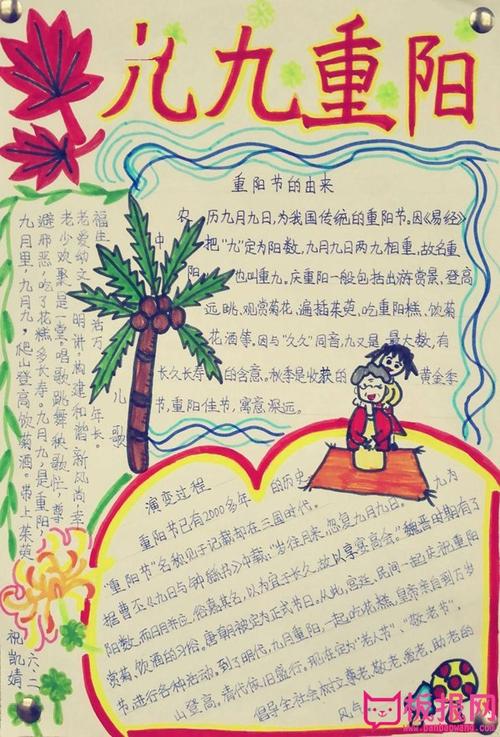 九九重阳
重阳节的由来
农历九月九日,为我国传统的重阳节。因《易经》
中把"九"定为阳数,九月九日两九相重,故名重
阳,也叫重九。庆重阳一般包括出游赏景、登高
远眺、观赏菊花、遍插茱萸、吃重阳糕、饮菊
花酒等,因与"久久"同音,九又是最大数,有
长久长寿的含意。秋季是收获的黄金季
节,重阳佳节,寓意深远。
儿歌
九月里,九月九,爬山登高饮菊酒。带上茱萸
避邪恶,吃了花糕多长寿。九月九,是重阳,
老少欢聚是一堂。唱歌跳舞秧歌忙,尊
老爱幼文明讲。构建和谐新风尚,幸
福生活万年长。
演变过程
重阳节已有2000多年的历史
"重阳节"名称见于记载却在三国时代。
据曹丕《九日与钟繇书》中载:"岁往月来,忽复九月九日。九为
阳数,而日月并应,俗嘉其名,以为宜于长久,故以享宴高会。"魏晋时期有了
赏菊、饮酒的习俗。唐朝被定为正式节日。从此,宫廷、民间一起庆祝重阳
节,进行各种活动。到了明代,九月重阳,一起吃花糕,皇帝亲自到万岁
山登高。清代依旧盛行。现在定为"老人节"、"敬老节",
倡导全社会树立尊老、敬老、爱老、助老的
风气
六、二
祝凯婧
板报网
www.banbaowang.com